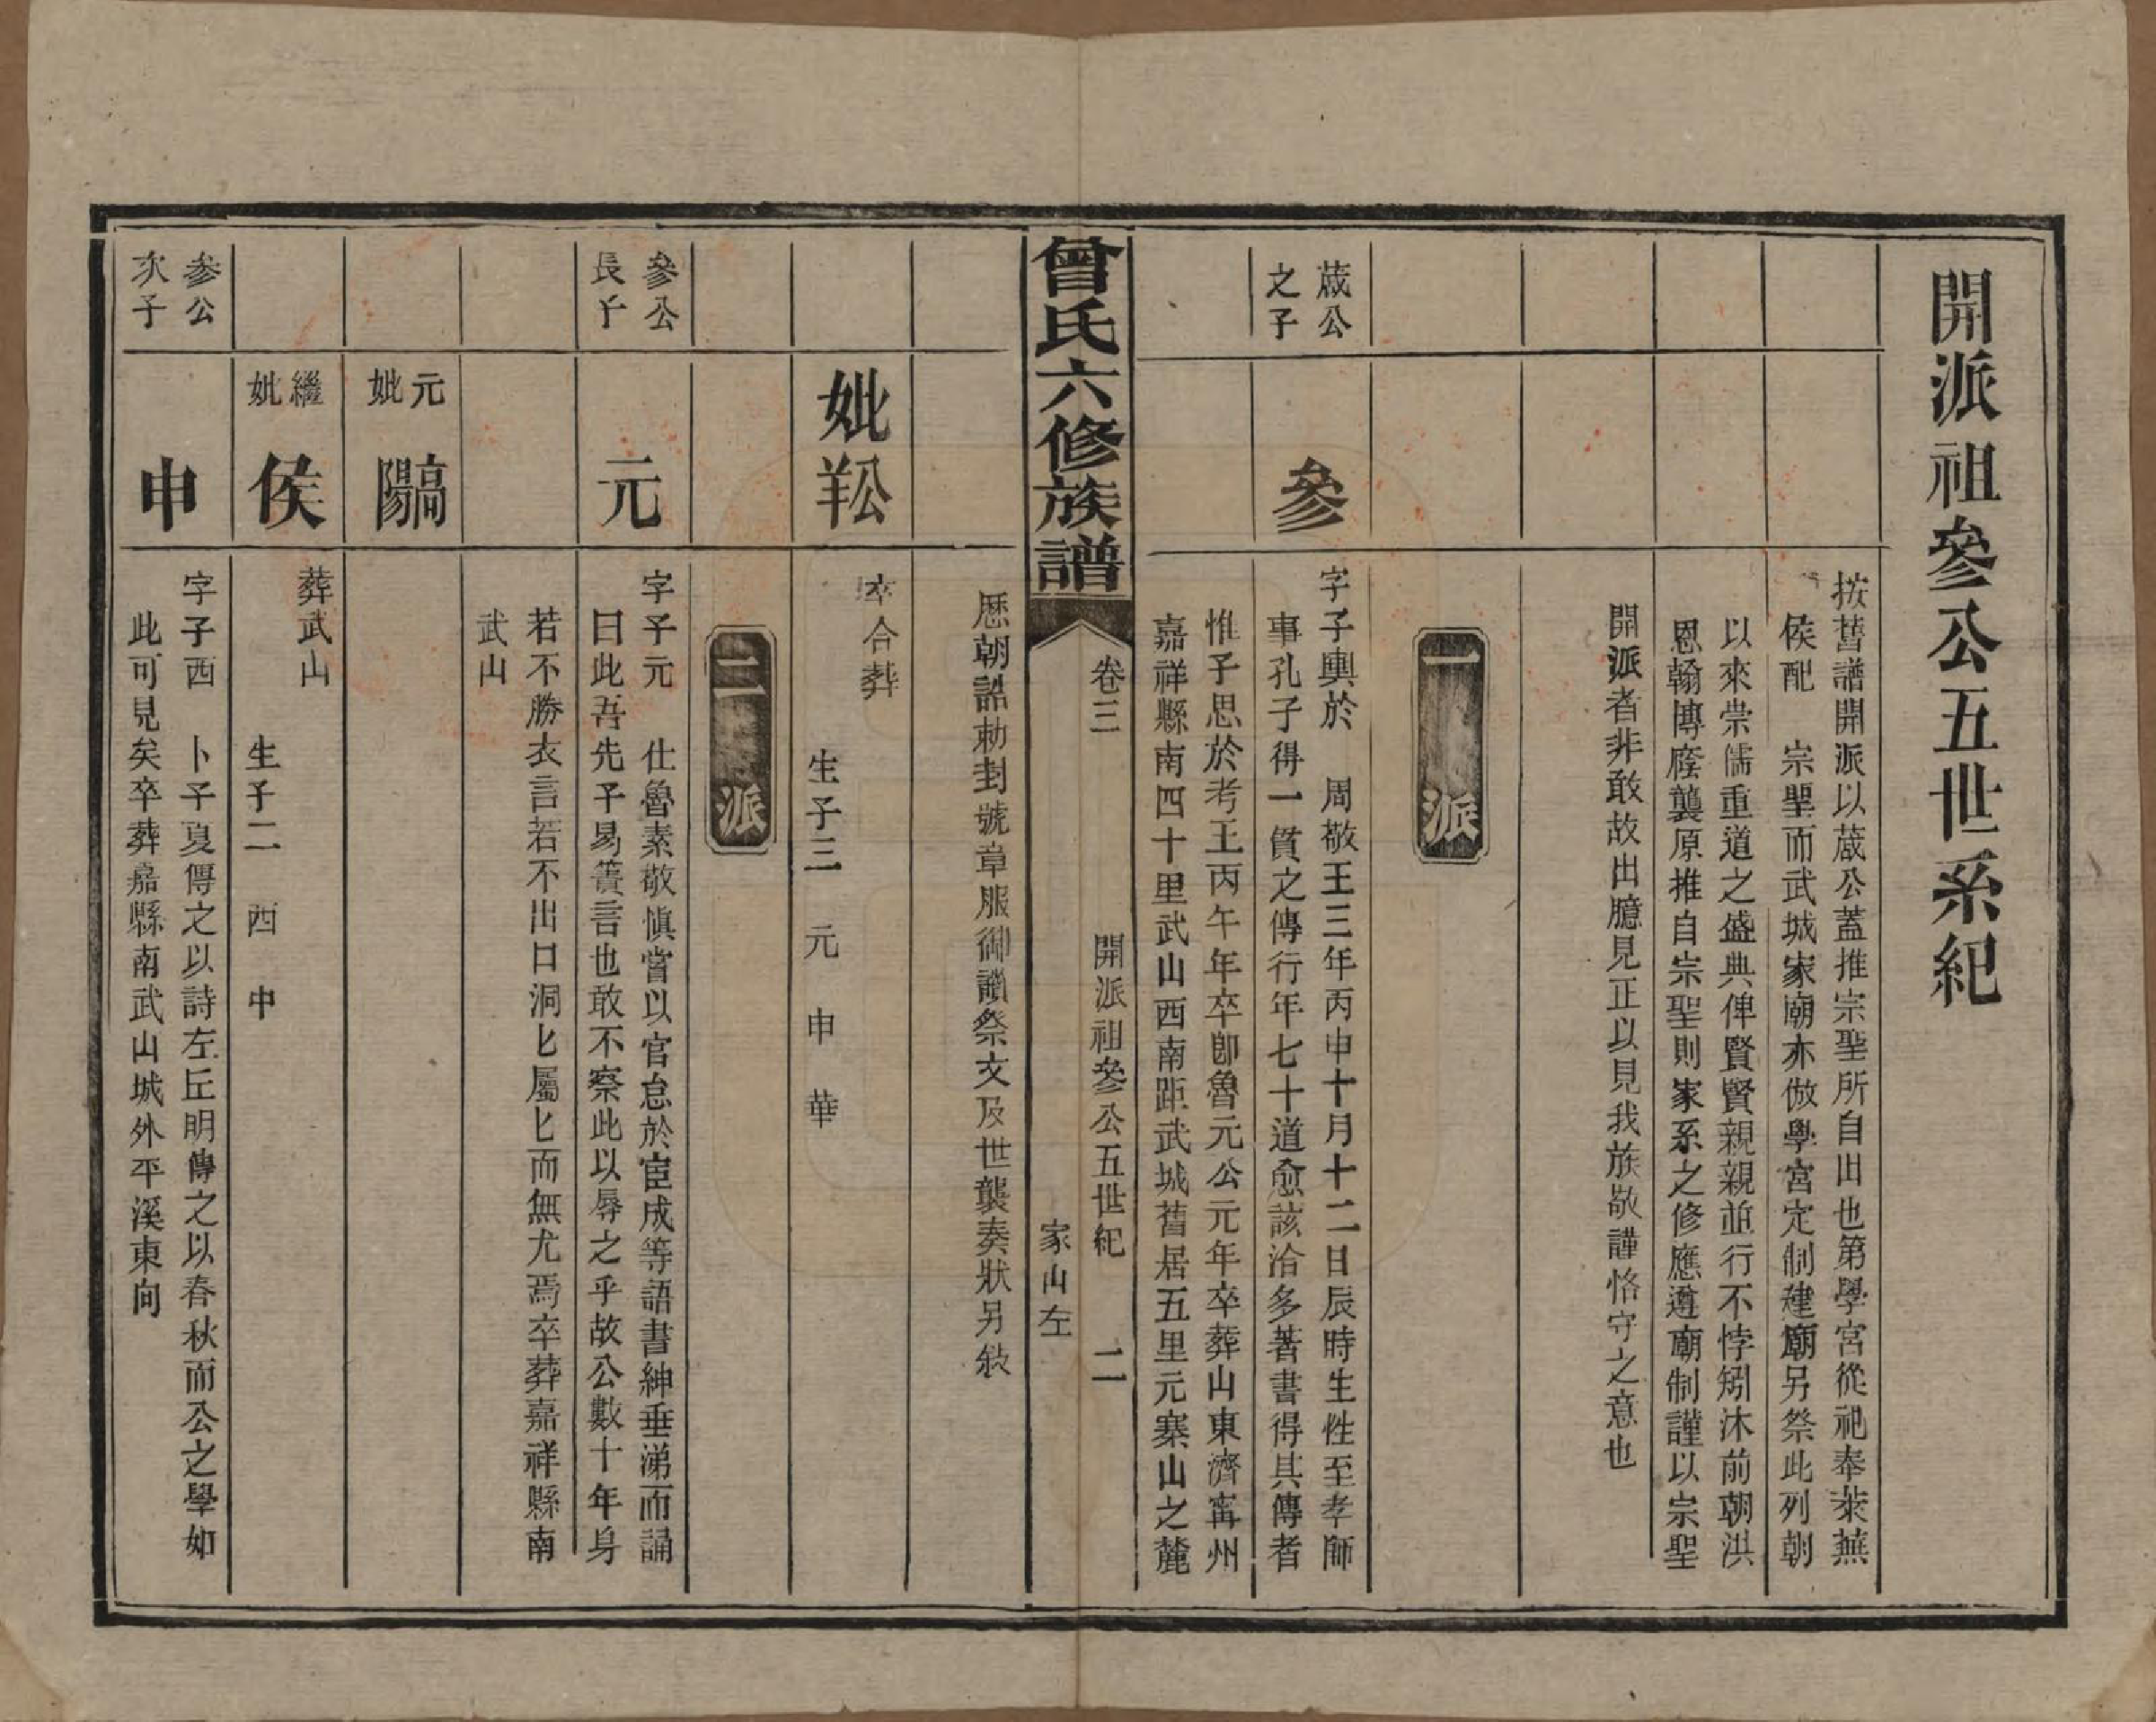 開派祖參公五世系紀
按舊譜開派以蒧公蓋推宗聖所自出也第學宮從祀奉萊蕪
侯配　宗聖而武城家廟亦倣學宮定制建廟另祭此列朝
以來崇儒重道之盛典俾賢賢親親並行不悖矧沐前朝洪
恩翰博廕襲原推自宗聖則家系之修應遵廟制謹以宗聖
開派者非敢故出臆見正以見我族敬謹恪守之意也
一派
蒧公之子
參
字子輿於　周敬王三年丙申十月十二日辰時生性至孝師
事孔子得一貫之傳行年七十道愈該洽多著書得其傳者
惟子思於考王丙午年卒卽魯元公元年卒葬山東濟甯州
嘉祥縣南四十里武山西南距武城舊居五里元寨山之麓
曾氏六修族譜
卷三　開派祖參公五世紀　二
家山左
歷朝誥勅封號章服御讚祭文及世襲奏狀另敘
妣公羊
卒合葬
生子三　元　申　華
二派
參公長子
元
字子元　仕魯素敬慎嘗以官怠於宦成等語書紳垂涕而誦
曰此吾先子易簀言也敢不察此以辱之乎故公數十年身
若不勝衣言若不出口洞匕屬匕而無尤焉卒葬嘉祥縣南
武山
元妣
高陽
繼妣
侯
葬武山
生子二　西　中
參公次子
申
字子西　卜子夏傳之以詩左丘明傳之以春秋而公之學如
此可見矣卒葬嘉縣南武山城外平溪東向